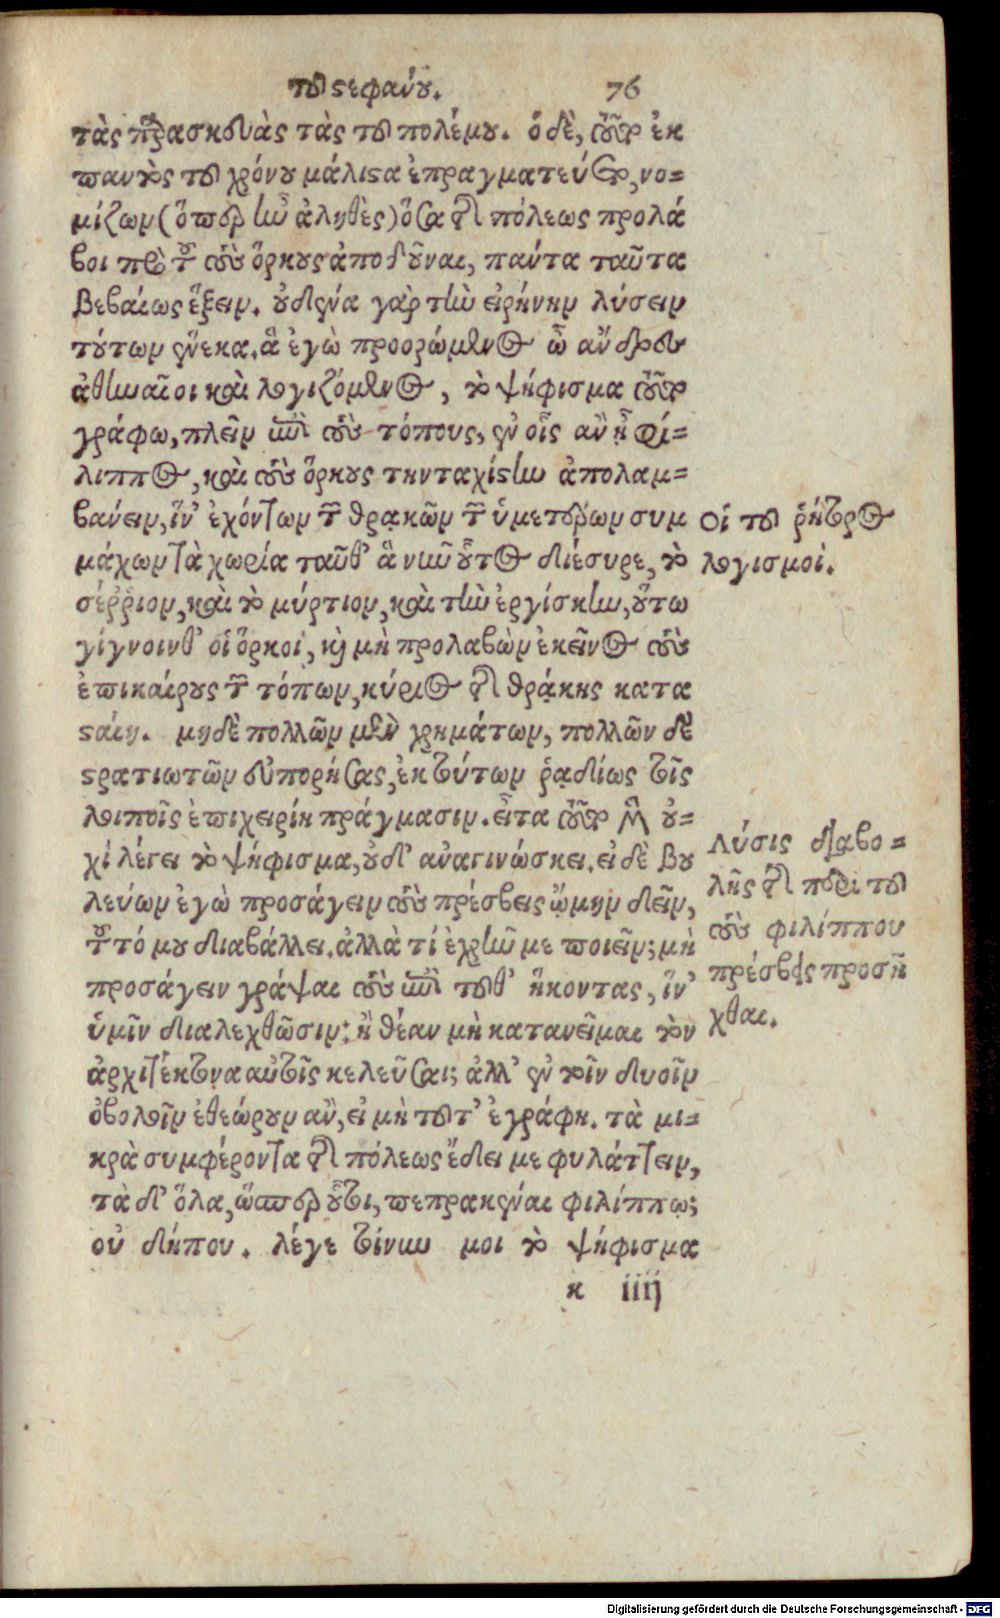 τοῦ στεφάνου. 76
τὰς παρασκευὰς τὰς τοῦ πολέμου. ὁ δὲ, τοῦτο ἐκ
παντὸς τοῦ χρόνου μάλιστα ἐπραγματεύετο, νο-
μίζων (ὅπερ ἦν ἀληθὲς) ὅσα τῆς πόλεως προλά
βοι πρὸ τοῦ τοὺς ὅρκους ἀποδοῦναι, πάντα ταῦτα
βεβαίως ἕξειν. οὐδένα γὰρ τὴν εἰρήνην λύσειν
τούτων ἕνεκα. ἃ ἐγὼ προορώμενος ὦ ἄνδρες
ἀθηναῖοι καὶ λογιζόμενος, τὸ ψήφισμα τοῦτο
γράφω, πλεῖν ἐπὶ τοὺς τόπους, ἐν οἷς ἂν ᾖ φί-
λιππος, καὶ τοὺς ὅρκους τὴν ταχίστην ἀπολαμ-
βάνειν, ἵν' ἐχόντων τῶν θρᾳκῶν τῶν ὑμετέρων συμ
μάχων τὰ χωρία ταῦθ' ἃ νῦν οὗτος διέσυρε, τὸ
σέρριον, καὶ τὸ μύρτιον, καὶ τὴν ἐργίσκην, οὕτω
γίγνοινθ' οἱ ὅρκοι, καὶ μὴ προλαβὼν ἐκεῖνος τοὺς
ἐπικαίρους τῶν τόπων, κύριος τῆς θρᾴκης κατα
σταίη. μηδὲ πολλῶν μὲν χρημάτων, πολλῶν δὲ
στρατιωτῶν εὐπορήσας, ἐκ τούτων ῥᾳδίως τοῖς
λοιποῖς ἐπιχειρίη πράγμασιν. εἶτα τοῦτο μὲν οὐ-
χὶ λέγει τὸ ψήφισμα, οὐδ' ἀναγινώσκει. εἰ δὲ βου
λεύων ἐγὼ προσάγειν τοὺς πρέσβεις ᾤμην δεῖν,
τοῦτό μου διαβάλλει. ἀλλὰ τί ἐχρῆν με ποιεῖν; μὴ
προσάγειν γράψαι τοὺς ἐπὶ τοῦθ' ἥκοντας, ἵν'
ὑμῖν διαλεχθῶσιν; ἢ θέαν μὴ κατανεῖμαι τὸν
ἀρχιτέκτονα αὐτοῖς κελεῦσαι; ἀλλ' ἐν τοῖν δυοῖν
ὀβολοῖν ἐθεώρουν ἂν, εἰ μὴ τοῦτ' ἐγράφη. τὰ μι-
κρὰ συμφέροντα τῆς πόλεως ἔδει με φυλάττειν,
τὰ δ' ὅλα, ὥσπερ οὗτοι, πεπρακέναι φιλίππῳ;
οὐ δήπου. λέγε τοίνυν μοι τὸ ψήφισμα
κ iiij
Οἱ τοῦ ῥήτορος
λογισμοὶ.
Λύσις διαβο-
λῆς τῆς περὶ τοῦ
τοὺς φιλίππου
πρέσβεις προσῆ
χθαι.
Digitalisierung gefördert durch die Deutsche Forschungsgemeinschaft - DFG